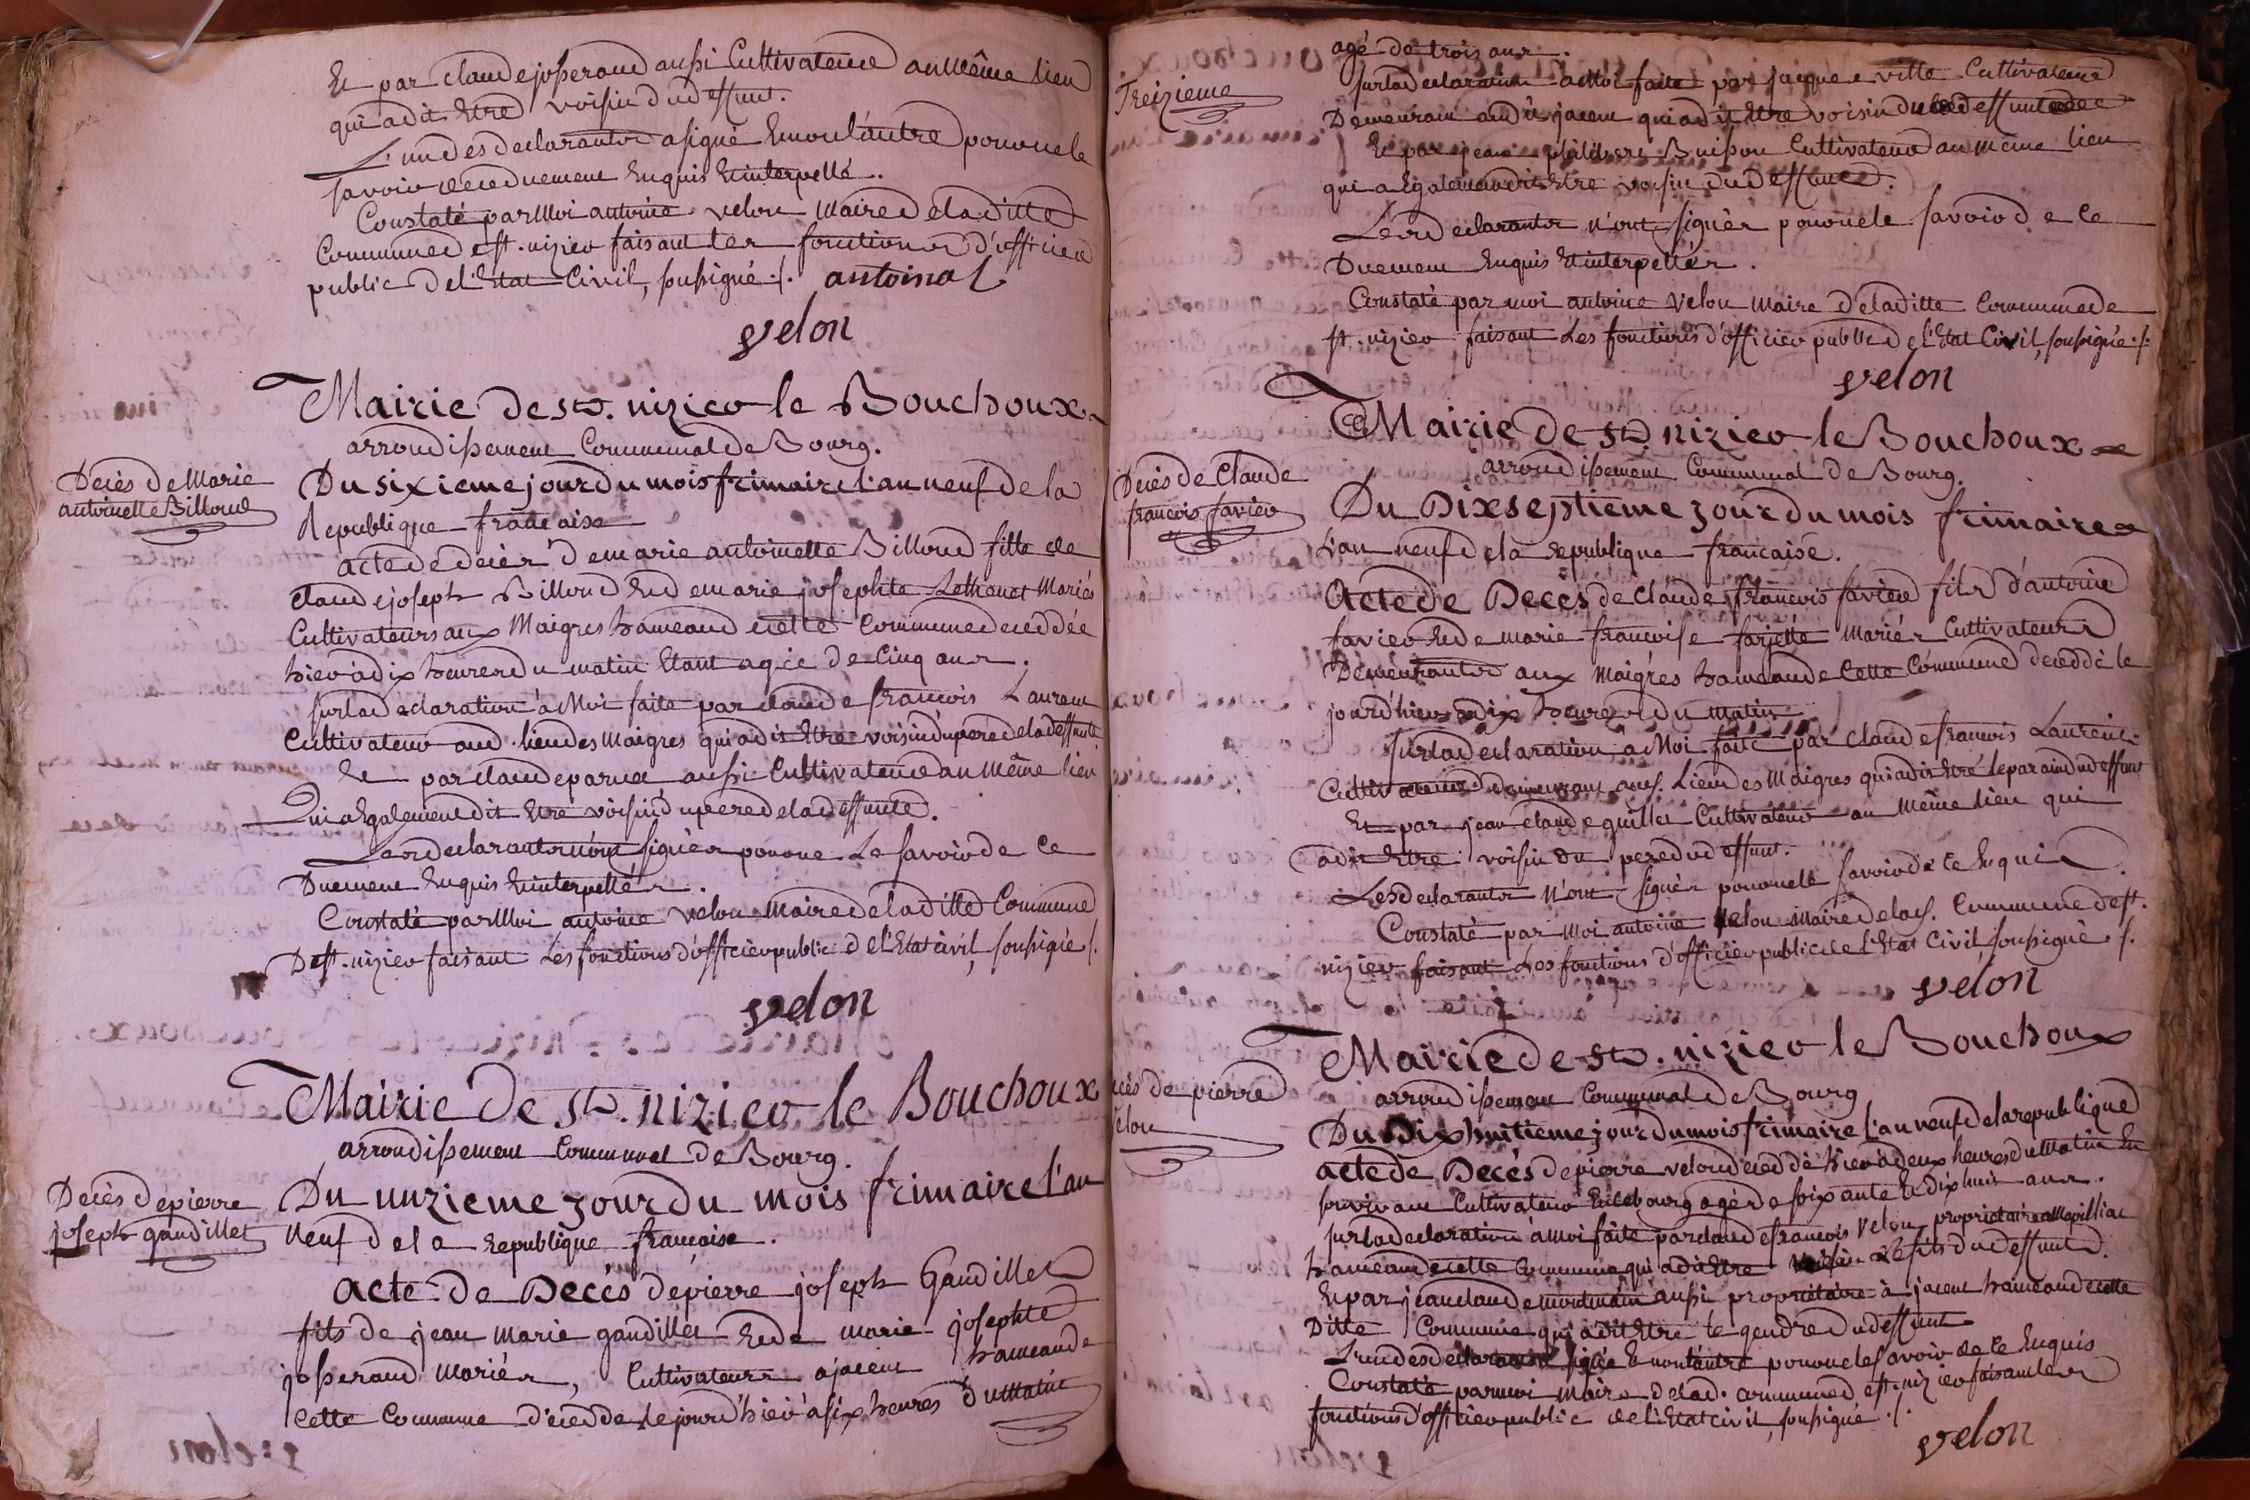 Et par claude josserand aussi Cultivateur au même lieu
qui a dit Etre voisin du deffunt.
L'un des declarants a signé Et non l'autre pour ne le
savoir de ce duement Enquis Et interpellé.
Constaté par Moi antoine velon Maire de la ditte
Commune de st. nizier faisant les fonctions d'officier
public de l'Etat Civil, soussigné ./. antoina
velon
Mairie de St. nizier le Bouchoux
arrondissement Communal de Bourg.
Decès de Marie
antoinette Billoud
Du sixieme jour du mois frimaire l'an neuf de la
Republique francaise
acte de decès de marie antoinette Billoud fille de
claude joseph Billoud Et de marie josephte Mariés
Cultivateurs aux Maigres hameau de cette Commune decedée
hier à dix heures du matin Etant agée de Cinq ans.
sur la declaration à Moi faite par claude francois Laurent
Cultivateur aud. lieu des Maigres qui a dit Etre voisin du père de la deffunte
Et par claude aussi Cultivateur au Même lieu
Qui a Egalement dit Etre voisin du père de la deffunte.
Les declarants n'ont signés pour ne Le savoir de ce
Duement Enquis Et interpellés.
Constaté par Moi antoine velon Maire de la ditte Commune
De st. nizier faisant Les fonctions d'officier public de l'Etat civil, soussigné ./.
velon
Mairie De St. nizier le Bouchoux
arrondissement Communal de Bourg.
Decès de pierre
joseph gaudillet
Du unzieme jour du mois frimaire l'an
Neuf de la Republique francaise.
acte de Decès de pierre joseph Gaudillet
fils de jean marie gaudillet Et de marie josephte
josserand Mariés, Cultivateurs a jacem hameau de
cette Commune décédé le jour d'hier à six heures du Matin
agé de trois ans.
Treizieme
sur la declaration à Moi faite par jacque ville Cultivateur
Demeurant audit jacem qui a dit Etre voisin du deffunt
Et par jean philibert Buisson Cultivateur au même lieu
qui a Egalement dit Etre voisin du Deffunt.
Les declarants n'ont signés pour ne le savoir de Ce
Duement Enquis Et interpellés.
Constaté par moi antoine velon maire de la ditte Commune de
st. nizier faisant Les fonctions d'officier public de l'Etat Civil, soussigné ./.
velon
Mairie De St. nizier le Bouchoux
arrondissement Communal de Bourg.
Decès de Claude
francois favier
Du Dix septieme jour du mois frimaire
L'an neuf de la Republique francaise.
Acte de Decès de claude francois favier fils d'antoine
favier Et de marie francoise farjette Mariés Cultivateurs
Demeurants aux Maigres hameau de Cette Commune decedé le
jour d'hier à dix heures du Matin
sur la declaration à Moi faite par claude francois Laurent
Cultivateur demeurant aud. Lieu des Maigres qui a dit Etre le parain du deffunt
Et par jean claude guillet Cultivateur au Même lieu qui
a dit Etre voisin du pere du deffunt.
Les declarants N'ont signés pour ne le savoir de ce Enquis
Constaté par Moi antoine velon Maire de lad. Commune de st.
nizier faisant Les fonctions d'officier public de l'Etat Civil soussigné ./.
velon
Mairie de St. nizier le Bouchoux
arrondissement Communal de Bourg
cès de pierre
velon
Du Dix huitieme jour du mois frimaire l'an neuf de la republique
acte de Decès de pierre velon decedé hier à deux heures du Matin En
survivant Cultivateur En ce bourg agé de soixante Et dix huit ans.
sur la declaration à Moi faite par claude francois velon proprietaire a
hameau de cette Commune qui a dit Etre Le fils du deffunt.
Et par jean claude aussi proprietaire à jacem hameau de cette
Ditte Commune qui a dit Etre le gendre du deffunt
L'un des declarants signé Et non l'autre pour ne le savoir de ce Enquis
Constaté par moi Maire de lad. commune de st. nizier faisant les
fonctions d'officier public de l'Etat civil, soussigné ./.
velon